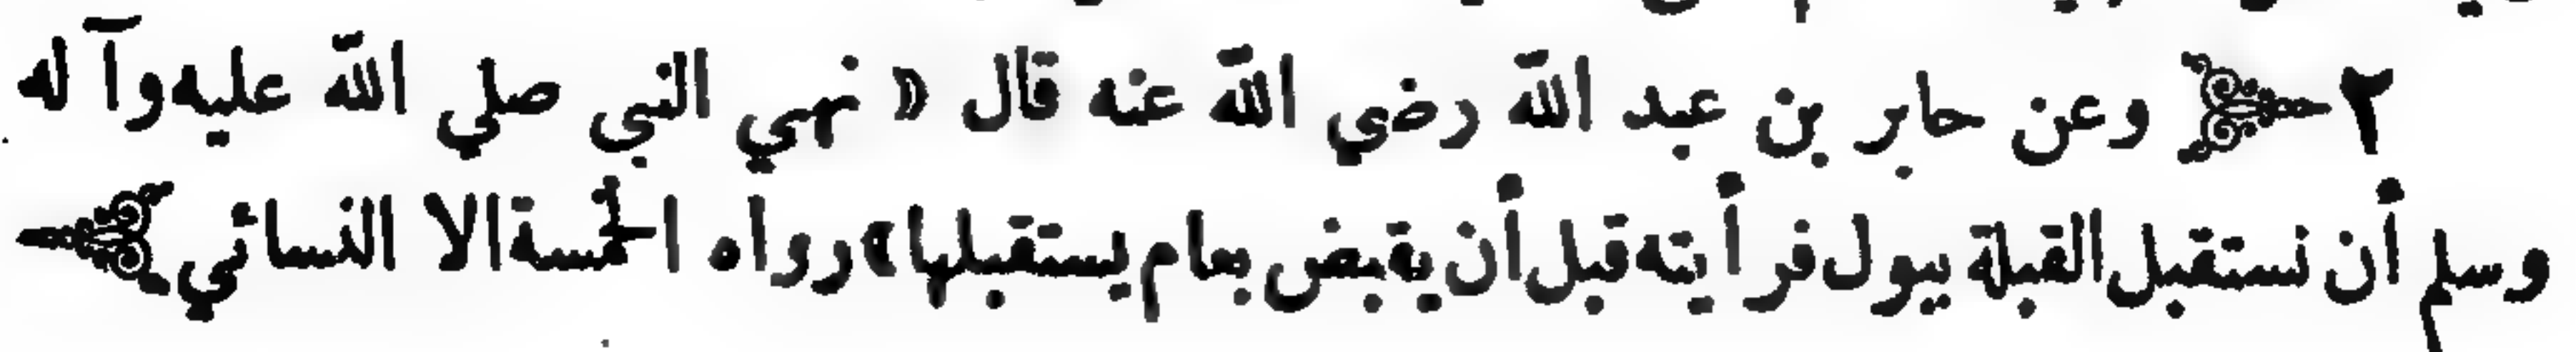 ٢ وعن حابر بن عبد الله رضي الله عنه قال « نهي النبي صلي الله عليه وآله
وسلم أن نستقبل القبلة ببول فرأيته قبل أن يقبض بعام يستقبلها » رواه الخمسة الا النسائي